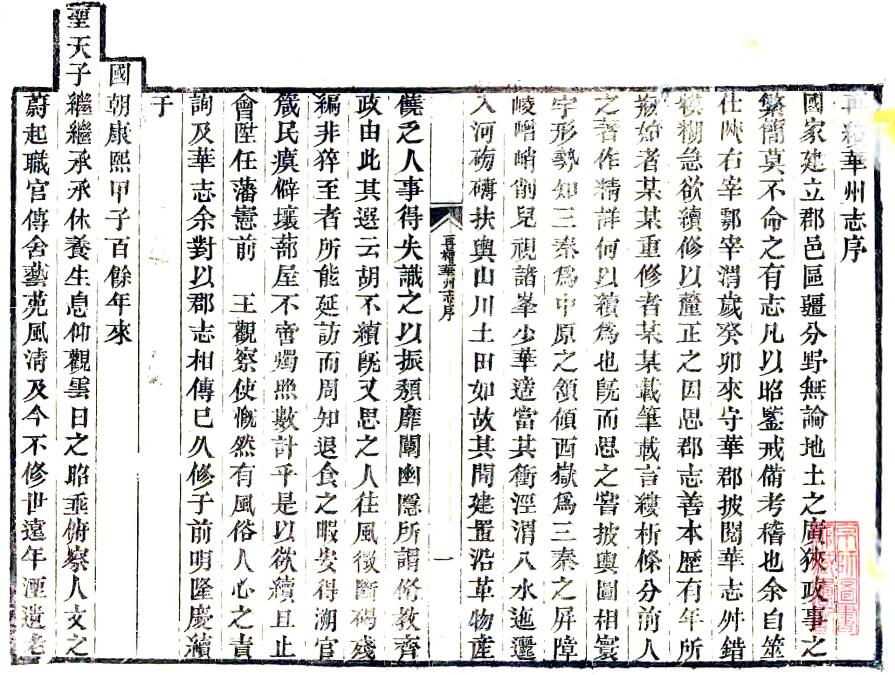 再續華州志序
國家建立郡邑區疆分野無論地土之廣狹政事之
繁簡莫不命之有志凡以昭鍳戒備考稽也余自筮
仕陝右宰鄠宰渭歲癸卯來守華郡披閱華志舛錯
模糊急欲續修以釐正之因思郡志善本歷有年所
剏始者某某重修者某某載筆載言縷析條分前人
之著作精詳何以續爲也旣而思之嘗披輿圖相寰
宇形勢如三秦爲中原之領傾西嶽爲三秦之屏障
崚嶒峭削兒視諸峯少華適當其衝涇渭八水迤邐
入河磅礡扶輿山川土田如故其間建置沿革物產
饒乏人事得失識之以振頹靡闡幽隱所謂脩教齊
政由此其選云胡不續旣又思之人往風微斷碣殘
編非猝至者所能延訪而周知退食之暇安得溯官
箴民瘼僻壤蔀屋不啻燭照數計乎是以欲續且止
會陞任藩憲前 王觀察使慨然有風俗人心之責
詢及華志余對以郡志相傳已久修于前明隆慶續
于
國朝康熙甲子百餘年來
聖天子繼繼承承休養生息仰觀雲日之昭垂俯察人文之
蔚起職官傳舍藝苑風淸及今不修世遠年湮遺老
再續華州志序
一